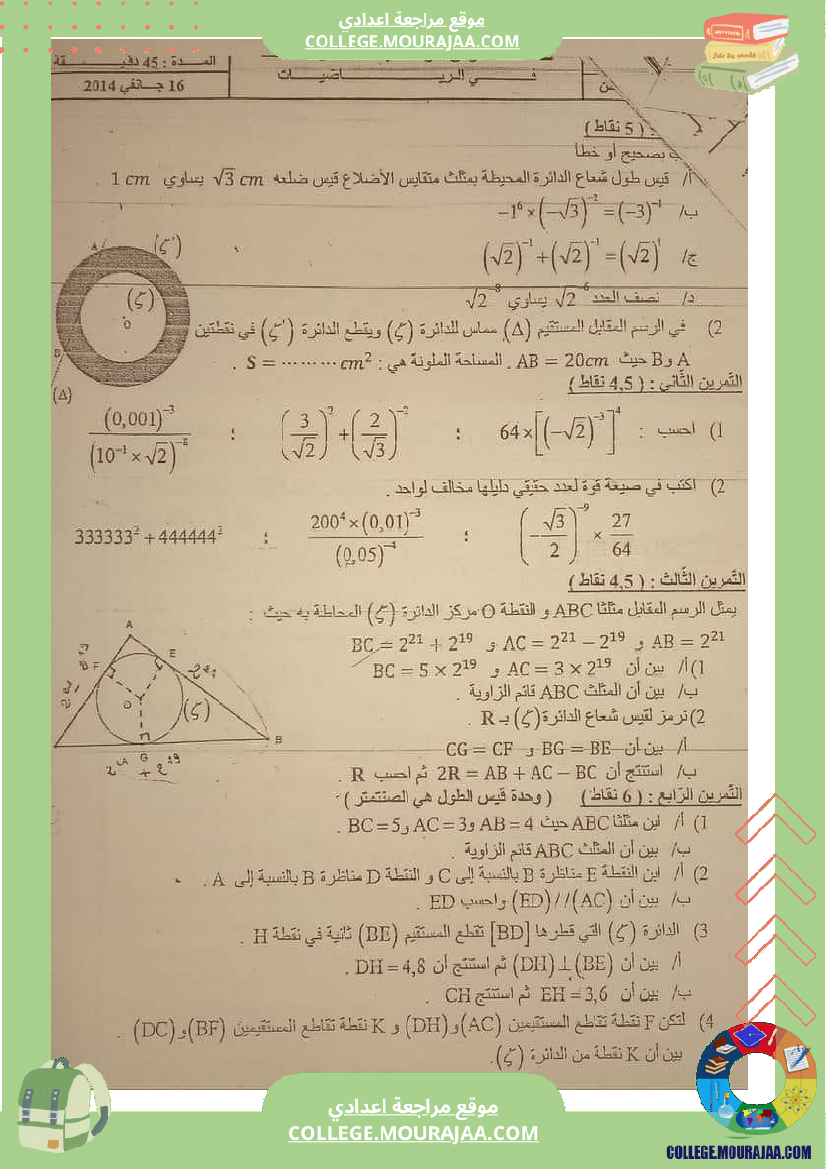 موقع مراجعة اعدادي
COLLEGE.MOURAJAA.COM
المدة : 45 دقيـــقة
16 جــانفي 2014
فــي الريــــاضيــات
( 5 نقاط )
بصحيح أو خطأ
أ/ قيس طول شعاع الدائرة المحيطة بمثلث متقايس الأضلاع قيس ضلعه √3 cm يساوي 1 cm .
ب/ −1⁶ × (−√3)⁻² = (−3)⁻¹
ج/ (√2)⁻¹ + (√2)⁻¹ = (√2)¹
د/ نصف العدد √2⁻⁶ يساوي √2⁻⁸
2) في الرسم المقابل المستقيم (Δ) مماس للدائرة (ζ) ويقطع الدائرة (ζ') في نقطتين
A و B حيث AB = 20cm . المساحة الملونة هي : S = ⋯⋯⋯ cm² .
A
(ζ')
(ζ)
O
B
(Δ)
التمرين الثاني : ( 4,5 نقاط )
1) احسب : 64×[(−√2)⁻³]⁴ ؛ (3/√2)² + (2/√3)⁻² ؛ (0,001)⁻³ / (10⁻¹ × √2)⁻⁸
2) اكتب في صيغة قوة لعدد حقيقي دليلها مخالف لواحد .
(−√3/2)⁻⁹ × 27/64 ؛ 200⁴ × (0,01)⁻³ / (0,05)⁻⁴ ؛ 333333² + 444444²
التمرين الثالث : ( 4,5 نقاط )
يمثل الرسم المقابل مثلثا ABC و النقطة O مركز الدائرة (ζ) المحاطة به حيث :
AB = 2²¹ و AC = 2²¹ − 2¹⁹ و BC = 2²¹ + 2¹⁹
1) أ/ بين أن AC = 3 × 2¹⁹ و BC = 5 × 2¹⁹
ب/ بين أن المثلث ABC قائم الزاوية .
2) نرمز لقيس شعاع الدائرة (ζ) بـ R .
أ/ بين أن BG = BE و CG = CF
ب/ استنتج أن 2R = AB + AC − BC ثم احسب R .
A
E
F
O
(ζ)
B
G
التمرين الرابع : ( 6 نقاط ) ( وحدة قيس الطول هي الصنتمتر )
1) أ/ ابن مثلثا ABC حيث AB = 4 و AC = 3 و BC = 5 .
ب/ بين أن المثلث ABC قائم الزاوية .
2) أ/ ابن النقطة E مناظرة B بالنسبة إلى C و النقطة D مناظرة B بالنسبة إلى A .
ب/ بين أن (ED) // (AC) واحسب ED .
3) الدائرة (ζ) التي قطرها [BD] تقطع المستقيم (BE) ثانية في نقطة H .
أ/ بين أن (DH) ⊥ (BE) ثم استنتج أن DH = 4,8 .
ب/ بين أن EH = 3,6 ثم استنتج CH .
4) لتكن F نقطة تقاطع المستقيمين (AC) و (DH) و K نقطة تقاطع المستقيمين (BF) و (DC) .
بين أن K نقطة من الدائرة (ζ).
موقع مراجعة اعدادي
COLLEGE.MOURAJAA.COM
COLLEGE.MOURAJAA.COM